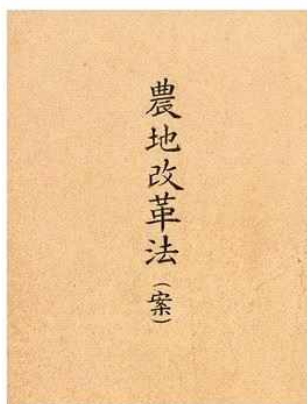 農地改革法(案)